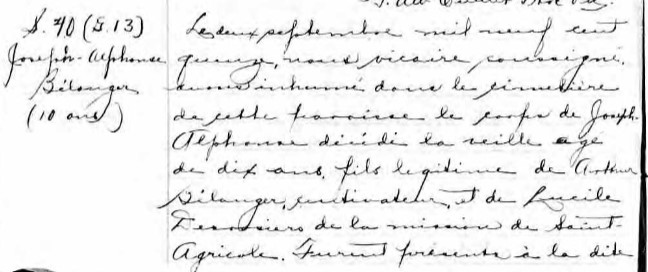 S. 40 (E. 13)
Joseph-Alphonse
Bélanger
(10 ans)
Le deux septembre mil neuf cent
quinze, nous vicaire soussigné,
avons inhumé dans le cimetière
de cette paroisse le corps de Joseph-
Alphonse décédé la veille age
de dix ans, fils legitime de Arthur
Bélanger, cultivateur, et de Lucile
Desrosiers de la mission de Saint-
Agricole. Furent présents à la dite